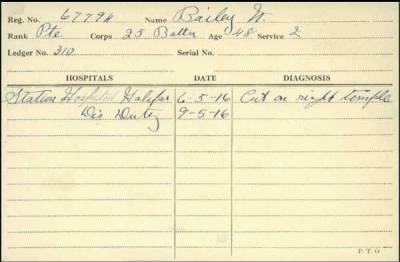 Reg. No. 67794 Name Bailey W.
Rank Pte Corps 25 Battn Age 48 Service 2
Ledger No. 310 Serial No.
HOSPITALS DATE DIAGNOSIS
Station Hospital Halifax 6-5-16 Cut on right temple
Dis Duty 9-5-16
P. T. O